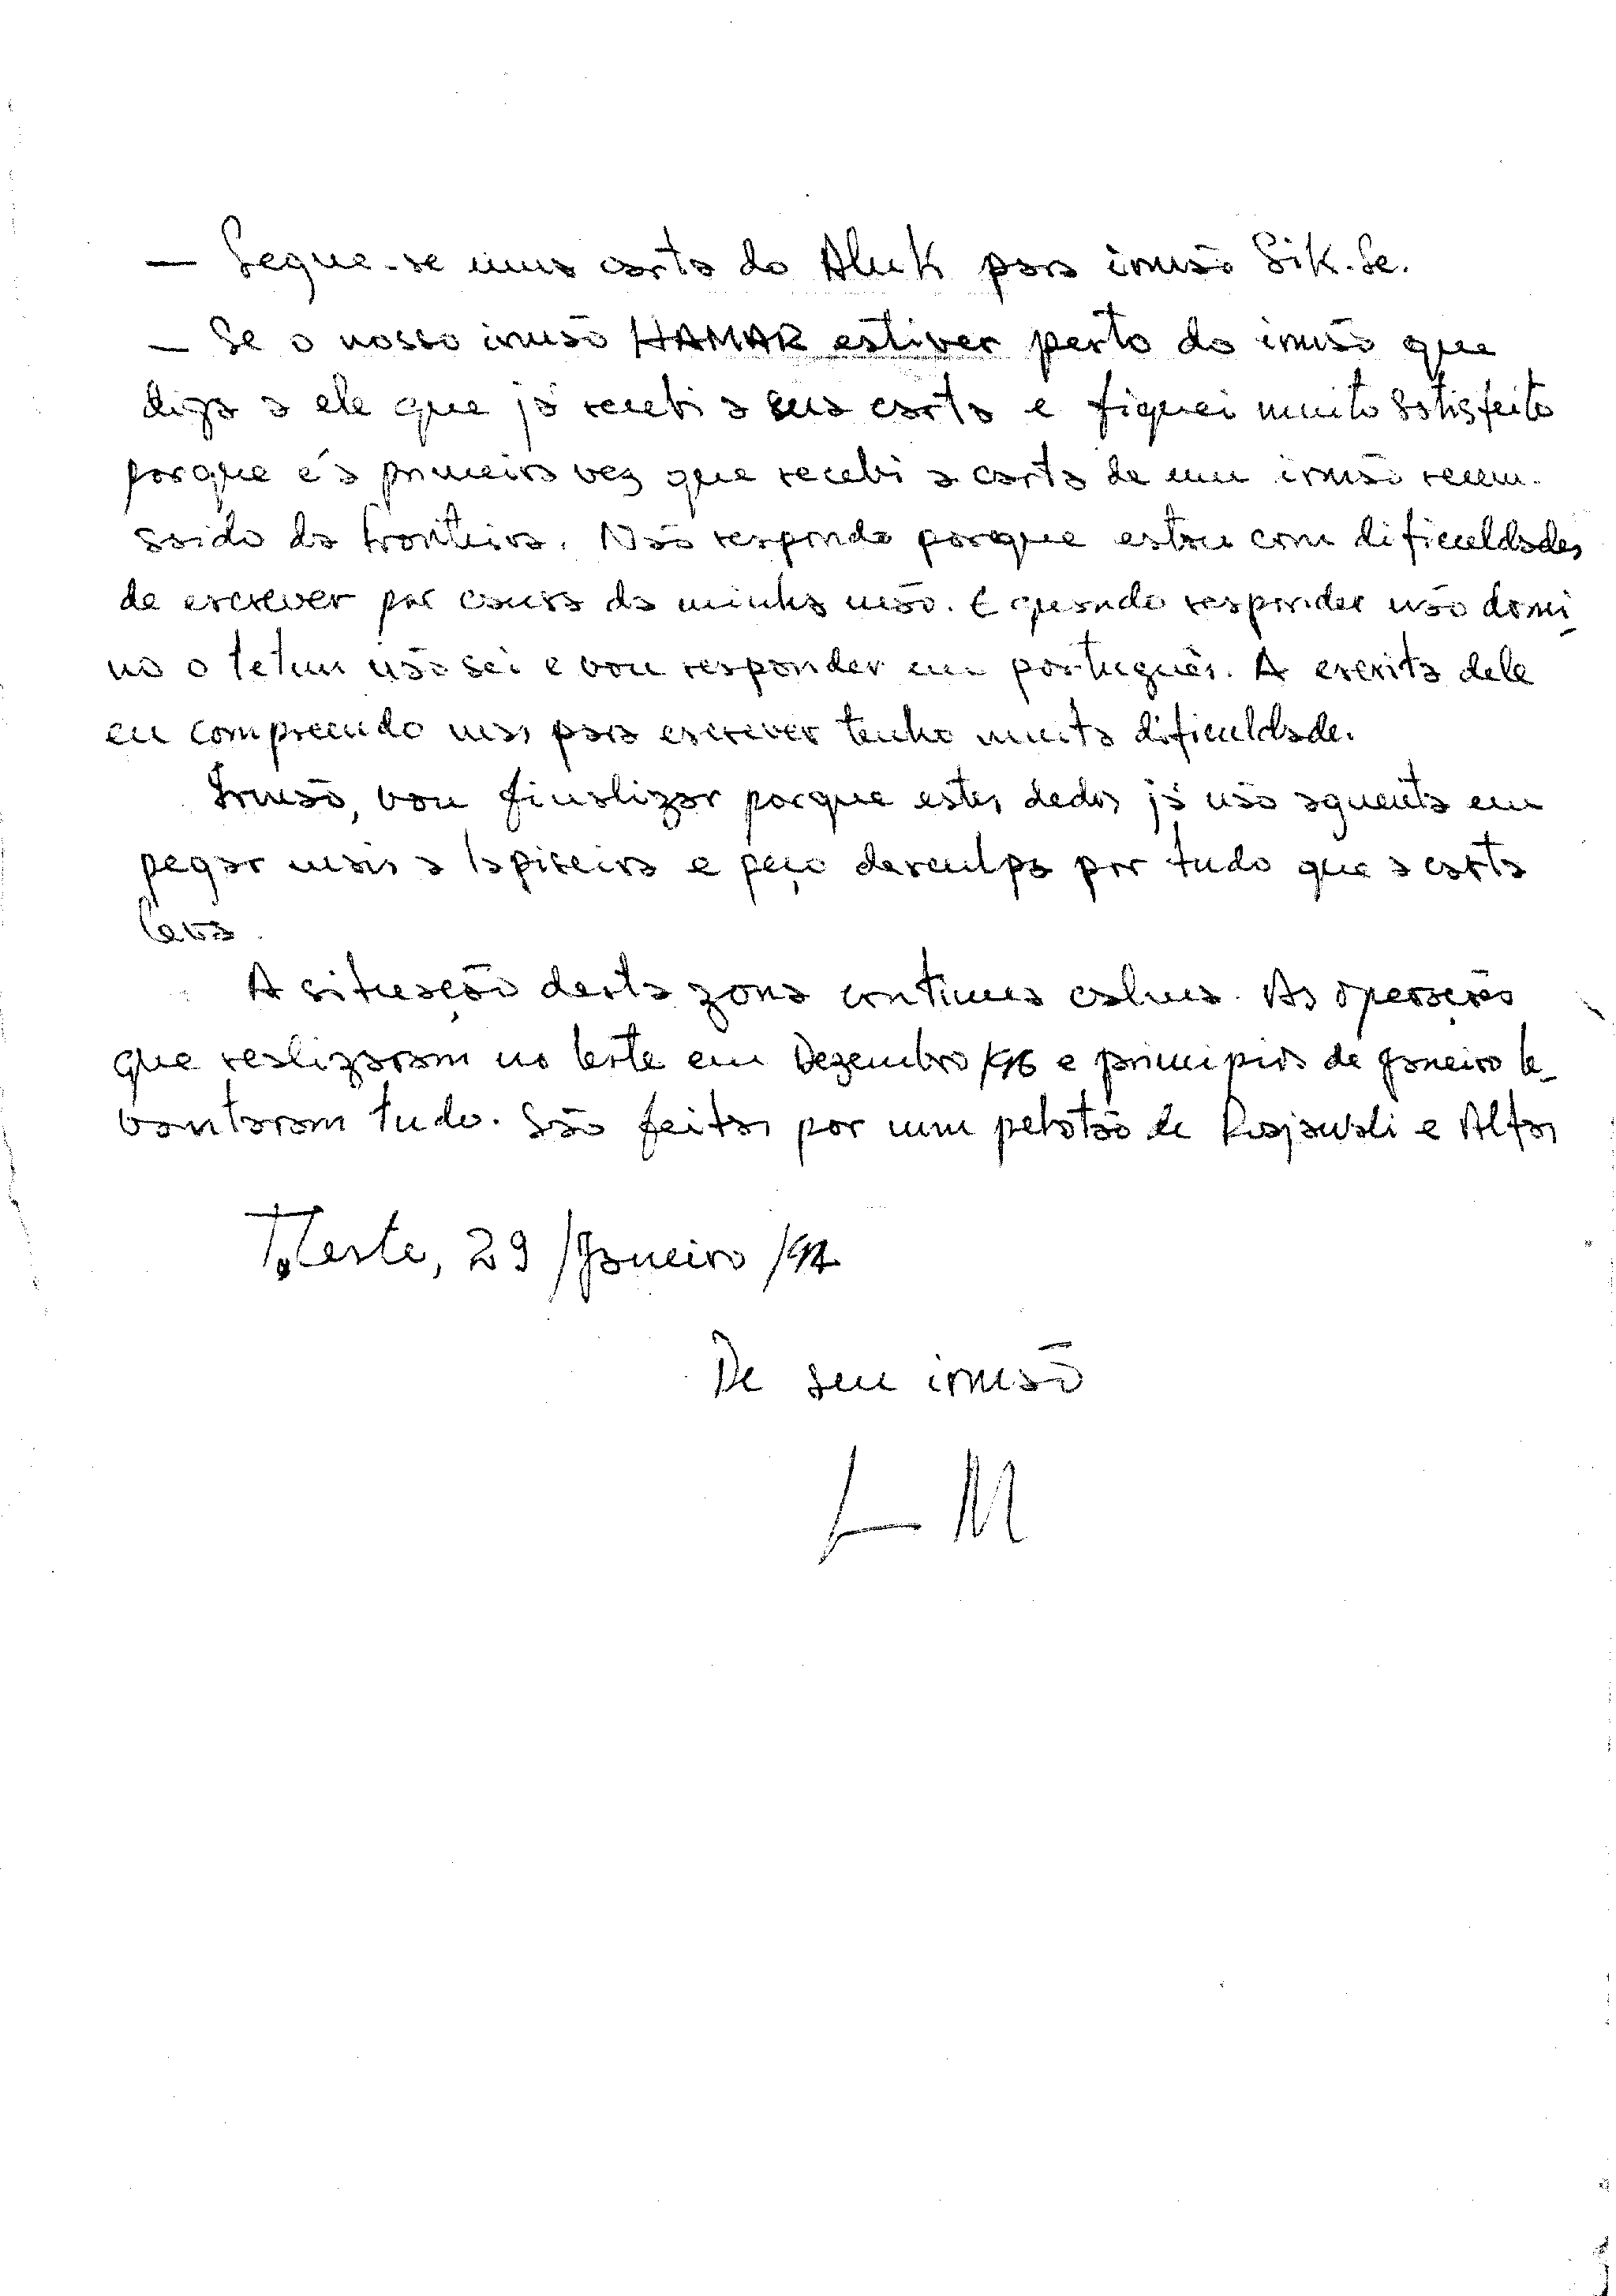 — Segue-se uma carta do Aluk para irmão Sik-Se.
— Se o nosso irmão HAMAR estiver perto do irmão que
diga a ele que já recebi a sua carta e fiquei muito satisfeito
porque é a primeira vez que recebi a carta de um irmão recem-
saido da fronteira. Não respondo porque estou com dificuldades
de escrever por causa da minha mão. E quando responder não domi_
no o tetum não sei e vou responder em português. A escrita dele
eu compreendo mas para escrever tenho muita dificuldade.
Irmão, vou finalizar porque estes dedos já não aguenta em
pegar mais a lapiseira e peço desculpa por tudo que a carta
leva.
A situação desta zona continua calma. As operações
que realizaram no leste em Dezembro/96 e principios de Janeiro le_
vantaram tudo. São feitas por um pelotão de Rajawali e Alfas
T. Leste, 29/Janeiro/97
De seu irmão
L M